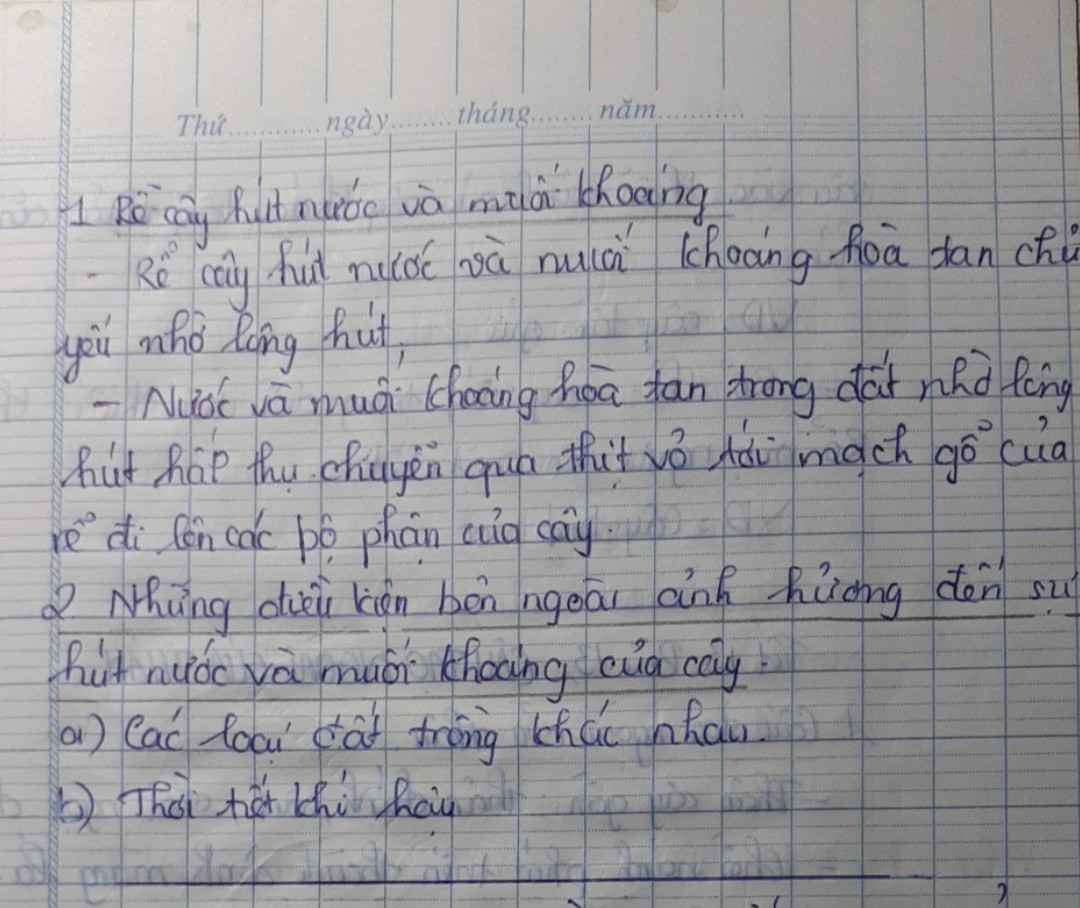 Thứ............ngày........tháng........năm............
1 Rễ cây hút nước và muối khoáng
- Rễ cây hút nước và muối khoáng hoà tan chủ
yếu nhờ lông hút,
- Nước và muối khoáng hòa tan trong đất nhờ lông
hút hấp thụ chuyển qua thịt vỏ tới mạch gỗ của
rễ đi lên các bộ phận của cây.
2 Những điều kiện bên ngoài ảnh hưởng đến sự
hút nước và muối khoáng của cây.
a) Các loại đất trồng khác nhau.
b) Thời tiết khí hậu